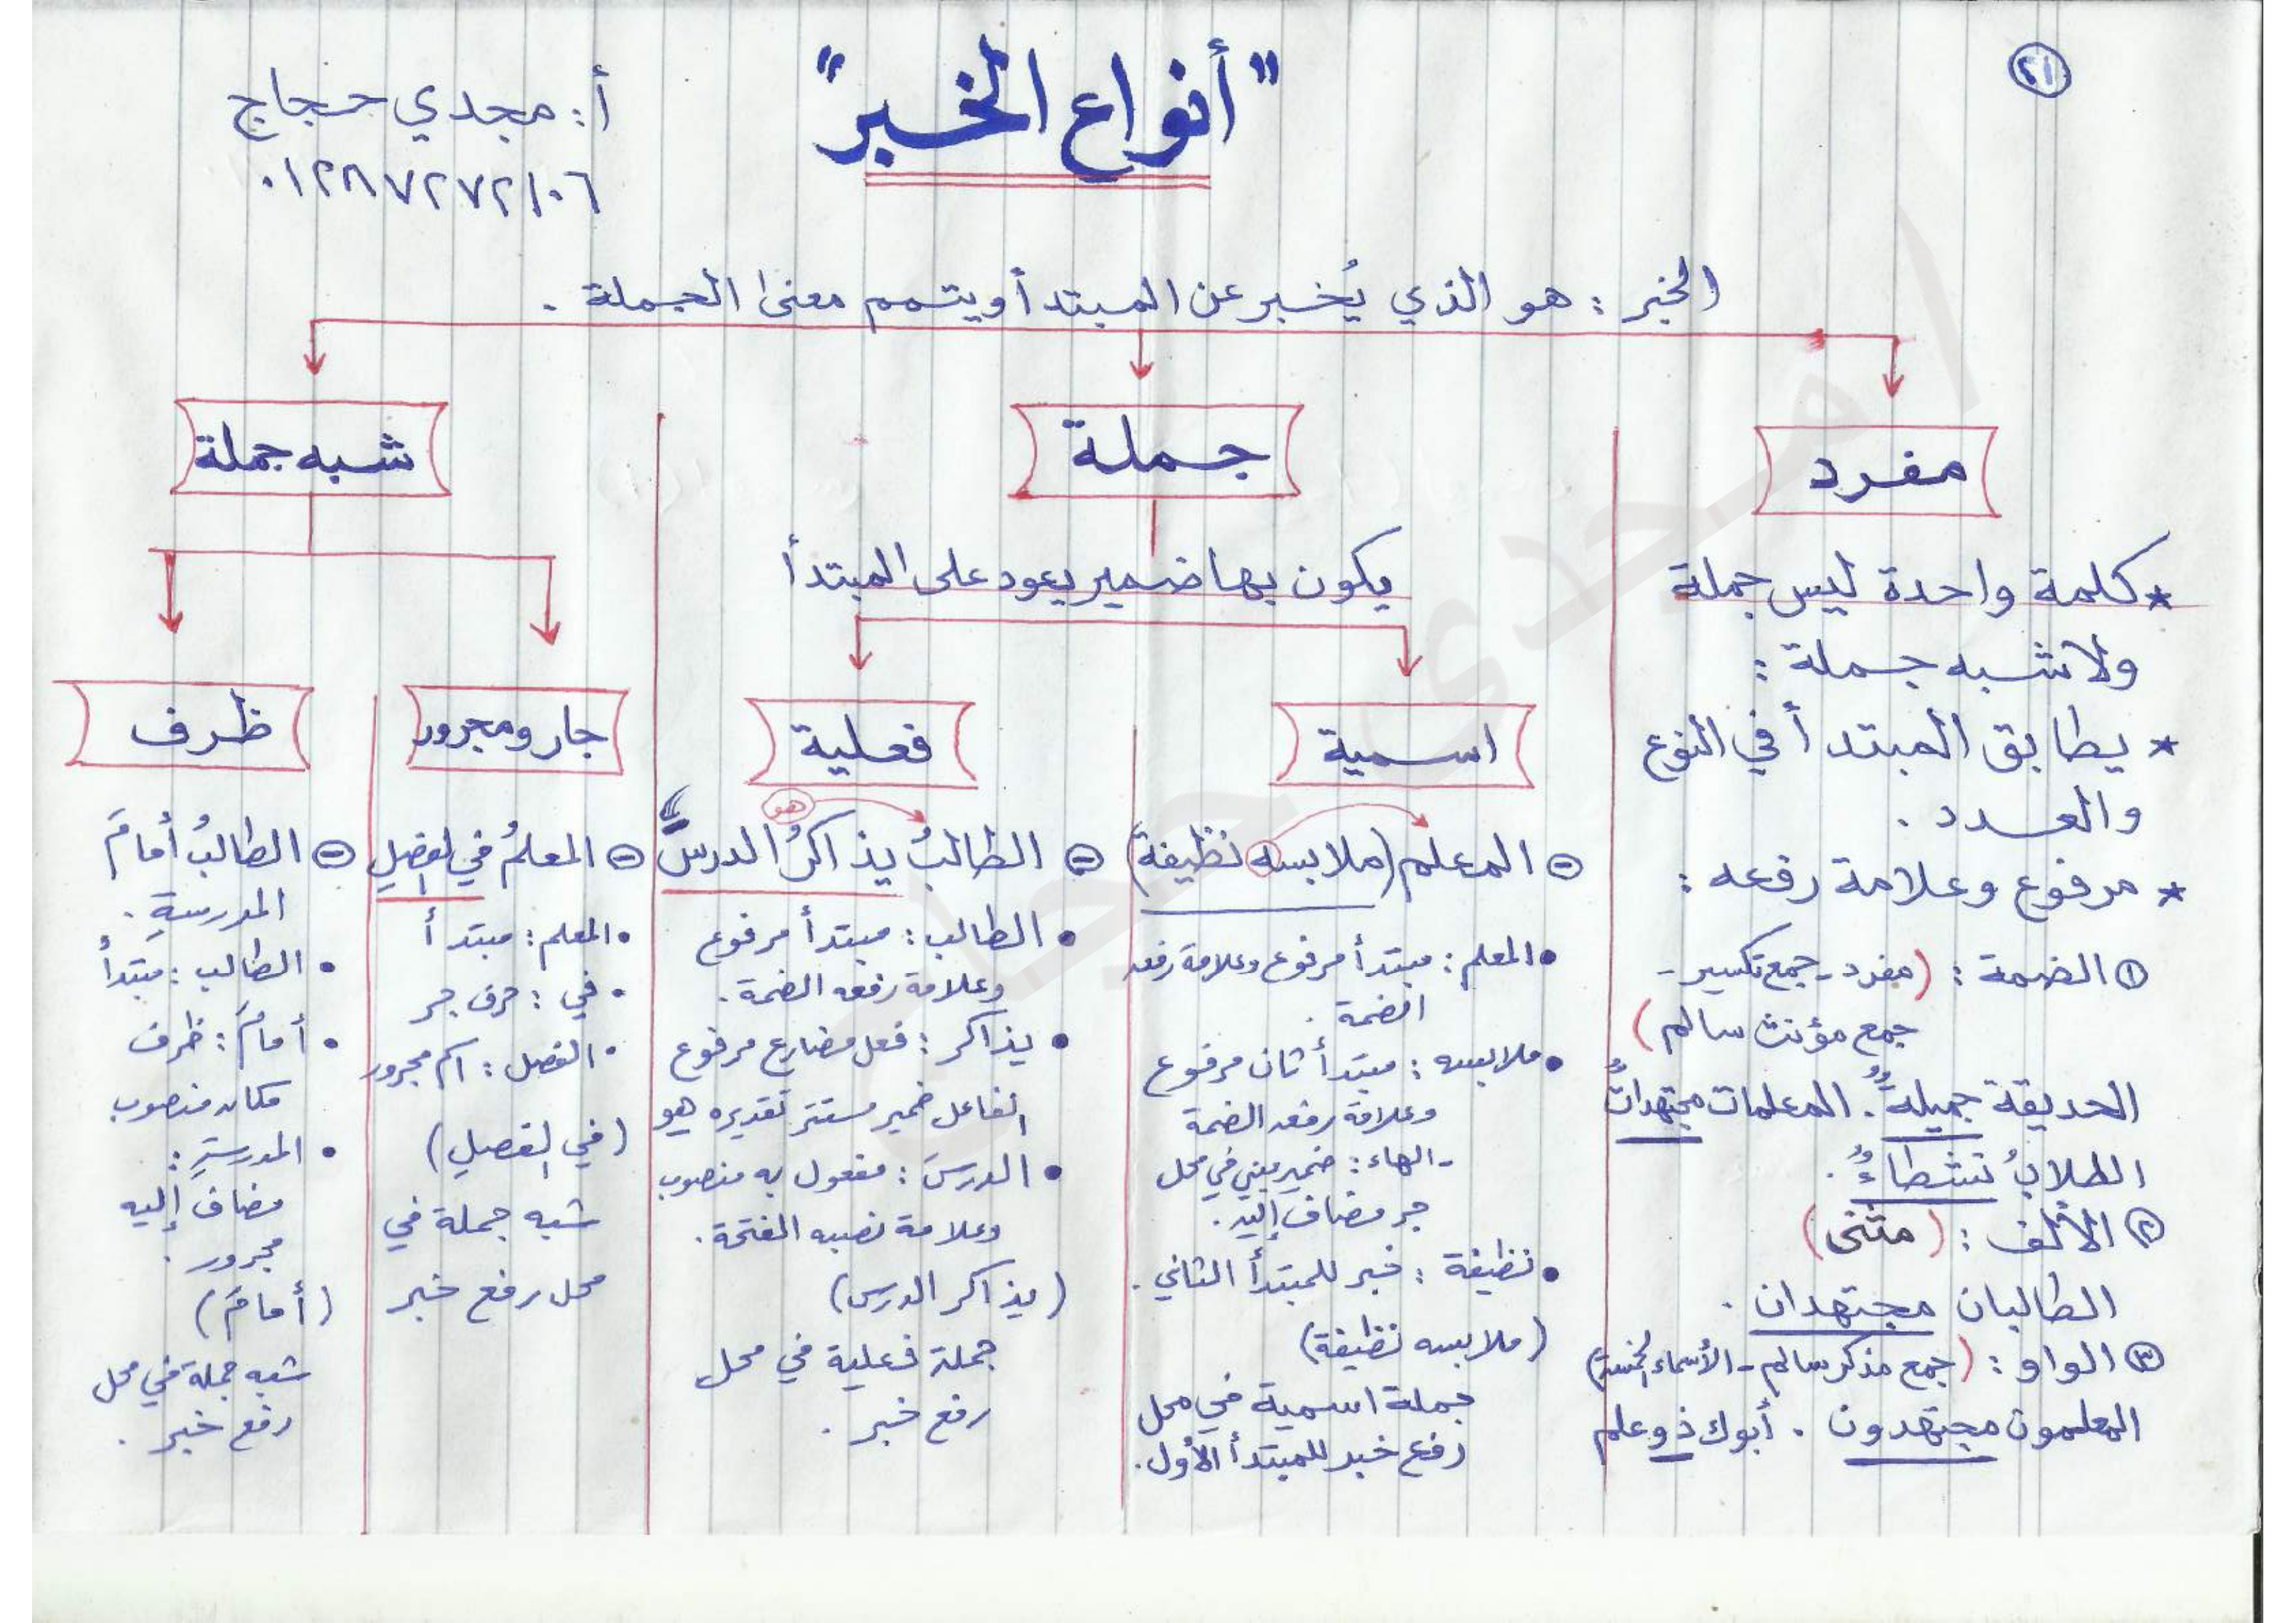 ٢١
"أنواع الخبر"
أ: مجدي حجاج
٠١٢٨٧٢٧٢١٠٦
الخبر : هو الذي يُخبر عن المبتدأ ويتمم معنى الجملة .
مفرد
* كلمة واحدة ليس جملة
ولا شبه جملة :
* يطابق المبتدأ في النوع
والعدد .
* مرفوع وعلامة رفعه :
① الضمة : (مفرد - جمع تكسير -
جمع مؤنث سالم)
الحديقة جميلةٌ . المعلمات مجتهداتٌ
الطلابُ نشطاءٌ .
② الألف : (مثنى)
الطالبان مجتهدان .
③ الواو : (جمع مذكر سالم - الأسماء الخمسة)
المعلمون مجتهدون . أبوك ذو علم
جملة
يكون بها ضمير يعود على المبتدأ
اسمية
- المعلم (ملابسه نظيفة)
• المعلم : مبتدأ مرفوع وعلامة رفعه
الضمة .
• ملابسه : مبتدأ ثان مرفوع
وعلامة رفعه الضمة
- الهاء : ضمير مبني في محل
جر مضاف إليه .
• نظيفة : خبر للمبتدأ الثاني .
(ملابسه نظيفة)
جملة اسمية في محل
رفع خبر للمبتدأ الأول .
فعلية
هو
- الطالبُ يذاكرُ الدرسَ
• الطالب : مبتدأ مرفوع
وعلامة رفعه الضمة .
• يذاكر : فعل مضارع مرفوع
الفاعل ضمير مستتر تقديره هو
• الدرسَ : مفعول به منصوب
وعلامة نصبه الفتحة .
(يذاكر الدرس)
جملة فعلية في محل
رفع خبر .
شبه جملة
جار ومجرور
- المعلمُ في الفصلِ
• المعلم : مبتدأ
• في : حرف جر
• الفصل : اسم مجرور
(في الفصلِ)
شبه جملة في
محل رفع خبر
ظرف
- الطالبُ أمامَ
المدرسةِ .
• الطالب : مبتدأ
• أمامَ : ظرف
مكان منصوب
• المدرسةِ :
مضاف إليه
مجرور .
(أمامَ)
شبه جملة في محل
رفع خبر .
أ مجدى حجاج